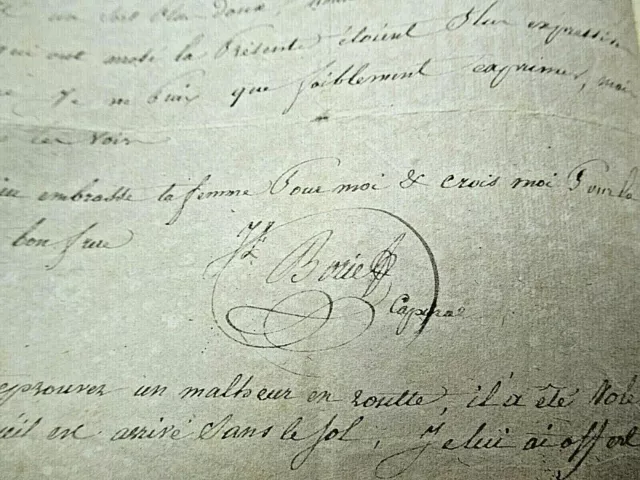 un
qui ont motivé la Présente étoient Plus expressives
Je ne Puis que foiblement exprimer, mai
les voir
embrasse ta femme Pour moi & crois moi Pour la
bon frere
Borie
Cap
eprouvez un malheur en routte, il a été Volé
est arrivé Sans le Sol, Je lui ai offert